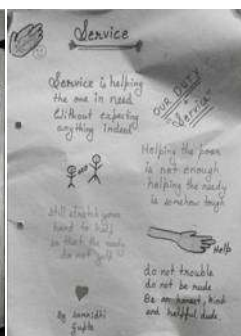 Service
Service is helping
the one in need
Without expecting
anything indeed
OUR DUTY
Service"
Helping the poor
is not enough
helping the needy
is somehow tough
still stretch your
hand to help
so that the needy
do not
Help
do not trouble
do not be rude
Be an honest, kind
and helpful dude.
By
Gupta